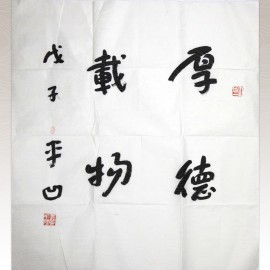 厚德
載物
戊子平凹